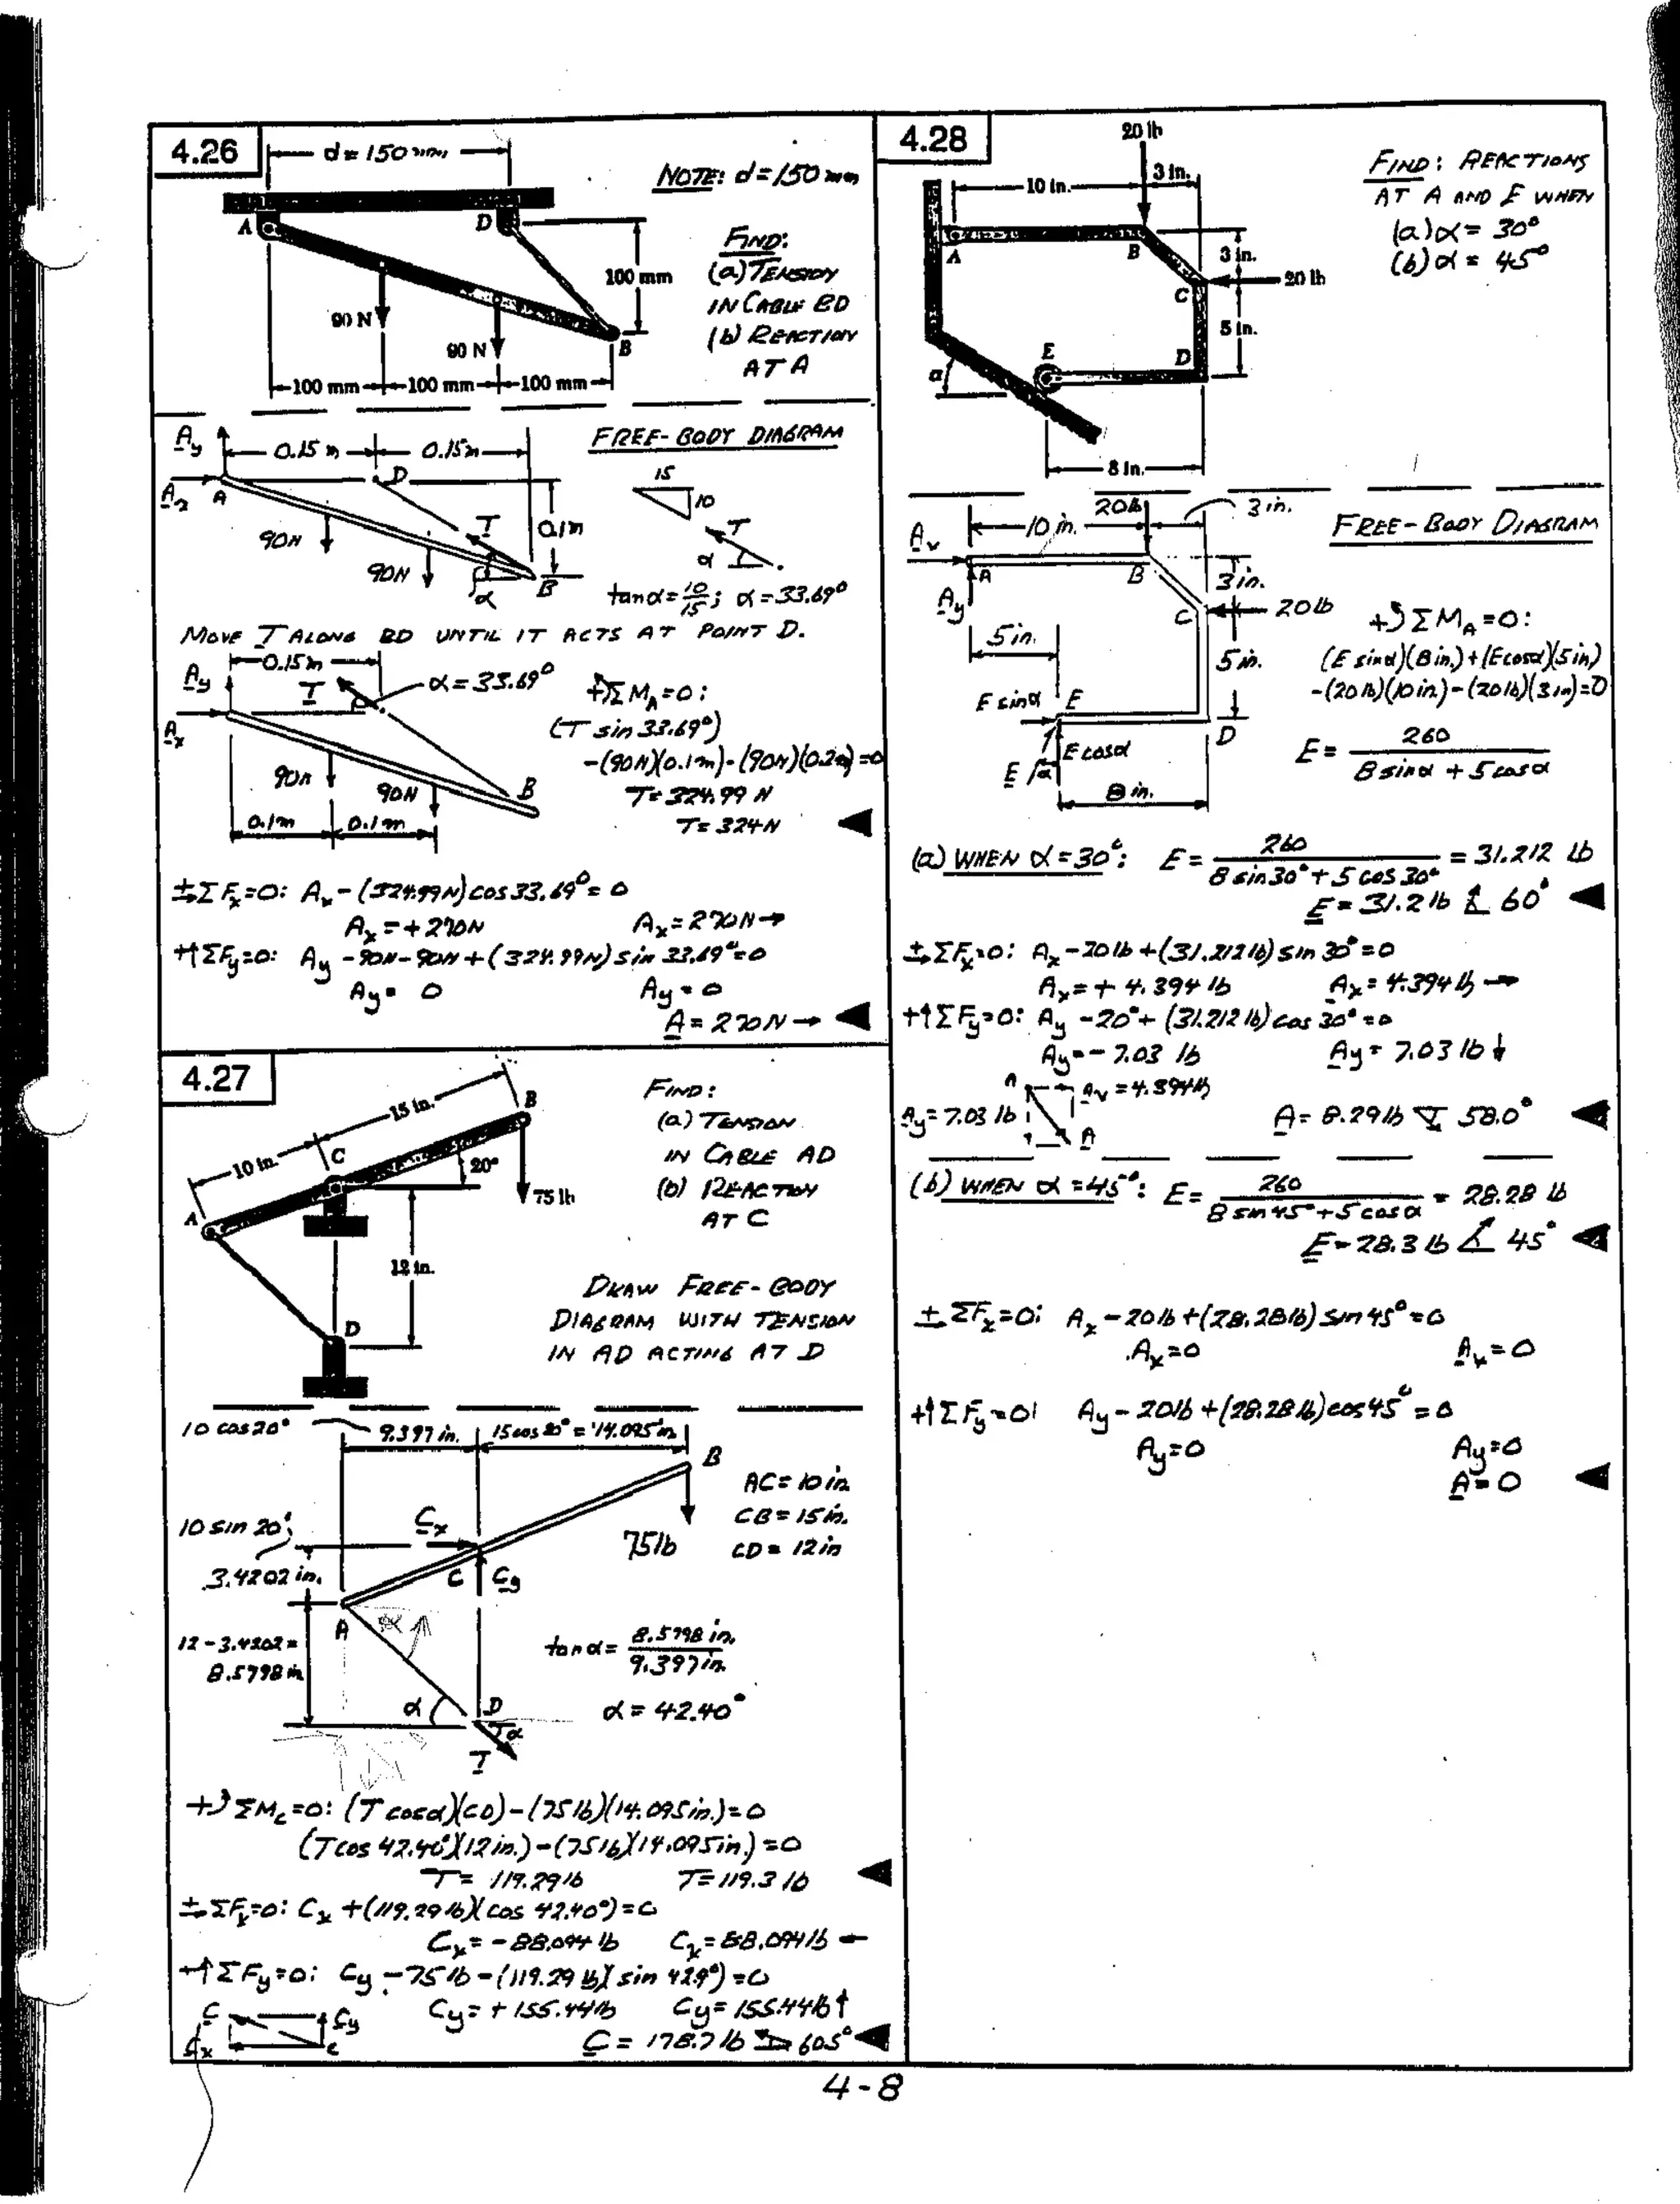 4.26
d = 150 mm
NOTE: d = 150 mm
A
D
FIND:
(a) TENSION
IN CABLE BD
(b) REACTION
AT A
100 mm
90 N
90 N
B
100 mm 100 mm 100 mm
FREE-BODY DIAGRAM
Ay 0.15 m 0.15 m
Ax A D
15
10
T 0.1 m
90N
90N
α B
T
α
tan α = 10/15; α = 33.69°
MOVE T ALONG BD UNTIL IT ACTS AT POINT D.
0.15 m
Ay T α = 33.69°
Ax
+) ΣM_A = 0:
(T sin 33.69°)
-(90N)(0.1m)-(90N)(0.2m) = 0
90N
90N B
T = 324.99 N
0.1 m 0.1 m
T = 324 N
ΣFx = 0: Ax - (324.99N) cos 33.69° = 0
Ax = +270N Ax = 270N →
+↑ΣFy = 0: Ay - 90N - 90N + (324.99N) sin 33.69° = 0
Ay = 0 Ay = 0
A = 270N →
4.27
15 in.
B
10 in.
C
20°
75 lb
A
12 in.
D
FIND:
(a) TENSION
IN CABLE AD
(b) REACTION
AT C
DRAW FREE-BODY
DIAGRAM WITH TENSION
IN AD ACTING AT D
10 cos 20° 9.397 in. 15 cos 20° = 14.095 in.
B
AC = 10 in.
CB = 15 in.
CD = 12 in
10 sin 20°
Cx
75 lb
3.4202 in.
C Cy
A
α
12 - 3.4202 =
8.5798 in.
tan α = 8.5798 in. / 9.397 in.
α D
α = 42.40°
α
T
+) ΣM_C = 0: (T cos α)(CD) - (75 lb)(14.095 in.) = 0
(T cos 42.40°)(12 in.) - (75 lb)(14.095 in.) = 0
T = 119.29 lb T = 119.3 lb
ΣFx = 0: Cx + (119.29 lb)(cos 42.40°) = 0
Cx = -88.094 lb Cx = 88.094 lb ←
+↑ΣFy = 0: Cy - 75 lb - (119.29 lb)(sin 42.4°) = 0
Cy = +155.44 lb Cy = 155.44 lb ↑
C Cy
Cx C
C = 178.7 lb 60.5°
4.28
20 lb
10 in. 3 in.
A B
3 in.
20 lb
C
5 in.
E D
α
8 in.
FIND: REACTIONS
AT A AND E WHEN
(a) α = 30°
(b) α = 45°
20 lb 3 in.
FREE-BODY DIAGRAM
Ax 10 in.
A B
3 in.
Ay
C 20 lb
5 in.
5 in.
E sin α E
E cos α D
E α
8 in.
+) ΣM_A = 0:
(E sin α)(8 in.) + (E cos α)(5 in)
-(20 lb)(10 in.) - (20 lb)(3 in) = 0
E = 260 / 8 sin α + 5 cos α
(a) WHEN α = 30°: E = 260 / 8 sin 30° + 5 cos 30° = 31.212 lb
E = 31.2 lb 60°
ΣFx = 0: Ax - 20 lb + (31.212 lb) sin 30° = 0
Ax = + 4.394 lb Ax = 4.394 lb →
+↑ΣFy = 0: Ay - 20 + (31.212 lb) cos 30° = 0
Ay = - 7.03 lb Ay = 7.03 lb ↓
A Ax = 4.394 lb
Ay = 7.03 lb
A
A = 8.29 lb 58.0°
(b) WHEN α = 45°: E = 260 / 8 sin 45° + 5 cos α = 28.28 lb
E = 28.3 lb 45°
ΣFx = 0: Ax - 20 lb + (28.28 lb) sin 45° = 0
Ax = 0 Ax = 0
+↑ΣFy = 0: Ay - 20 lb + (28.28 lb) cos 45° = 0
Ay = 0 Ay = 0
A = 0
4-8